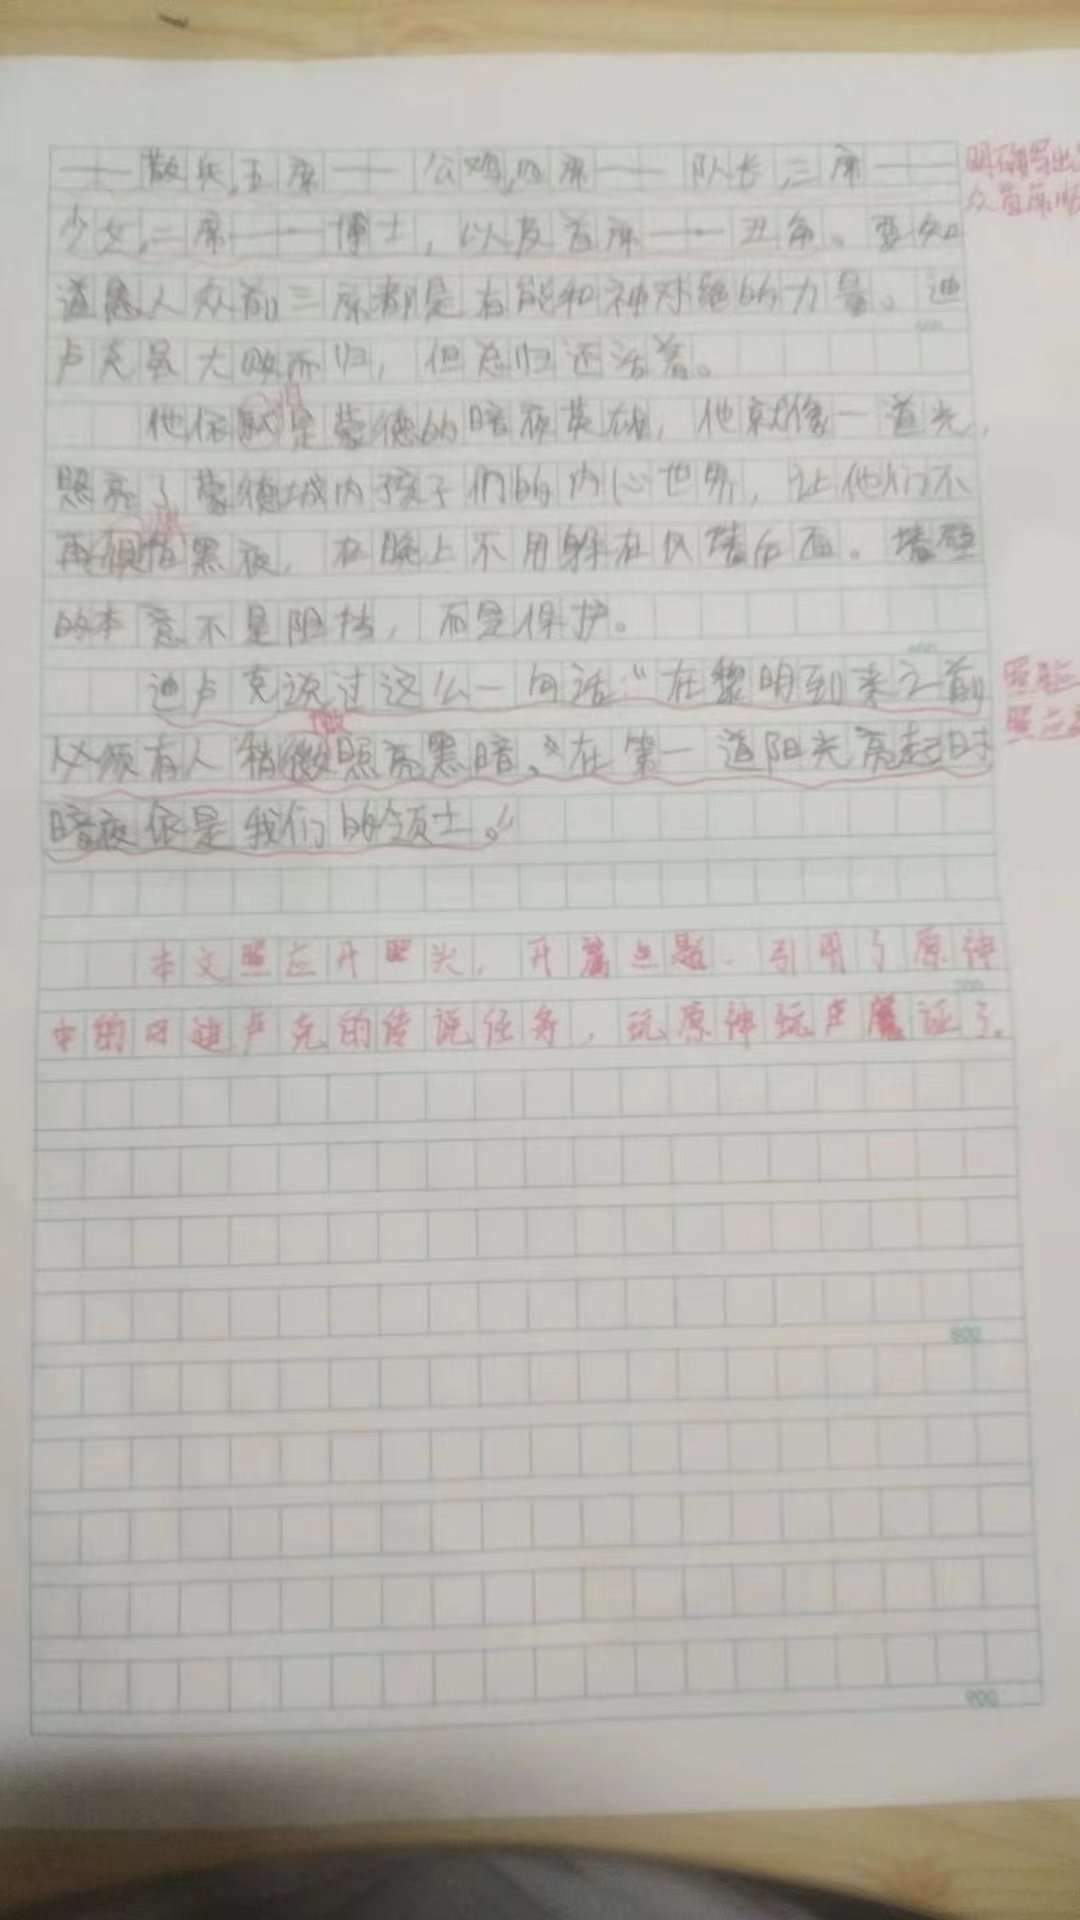 ——散兵,五席——公鸡,四席——队长,三席——
明确写出
众首席顺
少女,二席——博士，以及首席——丑角。要知
道愚人众前三席都是有能和神对绝的力量。迪
600
卢克虽大败而归，但总归还活着。
他依就是蒙德的暗夜英雄，他就像一道光，
照亮了蒙德城内孩子们的内心世界，让他们不
再惧怕黑夜，在晚上不用躲在仅墙后面。墙壁
的本意不是阻挡，而是保护。
迪卢克说过这么一句话“在黎明到来之前
必须有人稍微照亮黑暗、在第一道阳光亮起时
微
暗夜依是我们的领土。”
本文照应开照头，开篇点题．引用了原神
700
中的对迪卢克的传说任务，玩原神玩声魔证了。
800
900